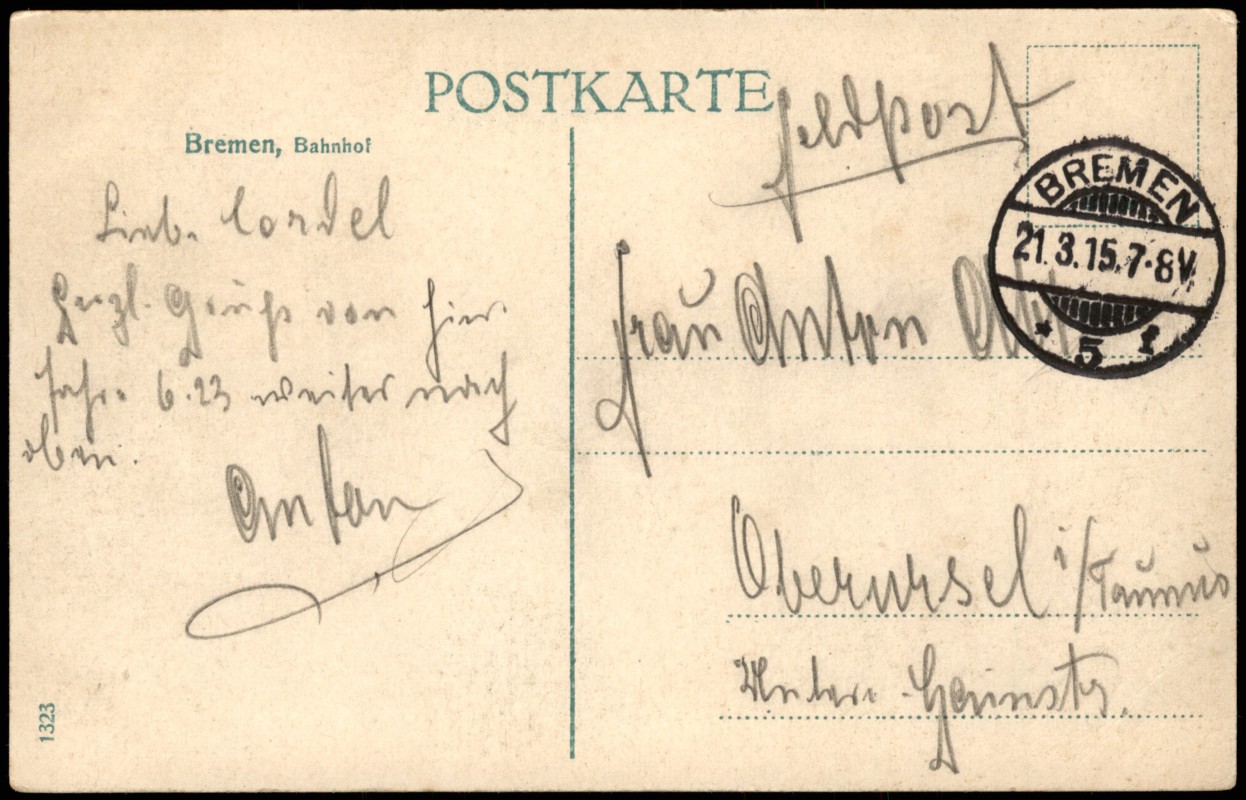 POSTKARTE
Feldpost
Bremen, Bahnhof
BREMEN
21.3.15.7-8V.
* 5 f
Lieb. Cordel
Herzl. Gruß von hier.
fahre 6.23 weiter nach
oben.
Anton
Frau Anton
Oberursel i/Taunus
Untere
1323